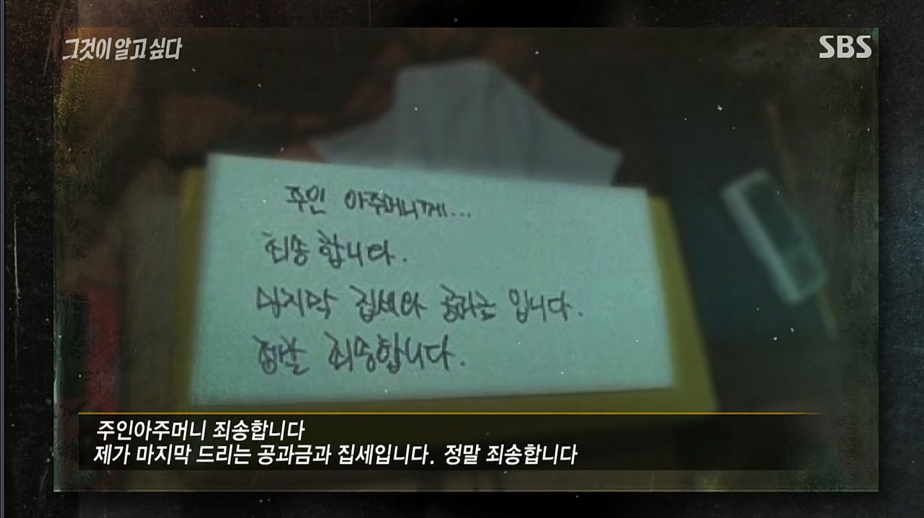 그것이 알고 싶다
SBS
주인 아주머니께...
죄송합니다.
마지막 집세와 공과금 입니다.
정말 죄송합니다.
주인아주머니 죄송합니다
제가 마지막 드리는 공과금과 집세입니다. 정말 죄송합니다